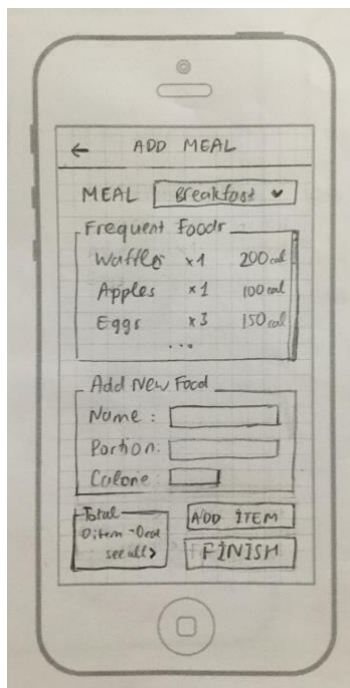 ← ADD MEAL
MEAL Breakfast
Frequent Foods
Waffles x1 200 cal
Apples x1 100 cal
Eggs x3 150 cal
...
Add New Food
Name :
Portion:
Calorie :
Total
0 item - 0 cal
see all >
ADD ITEM
FINISH